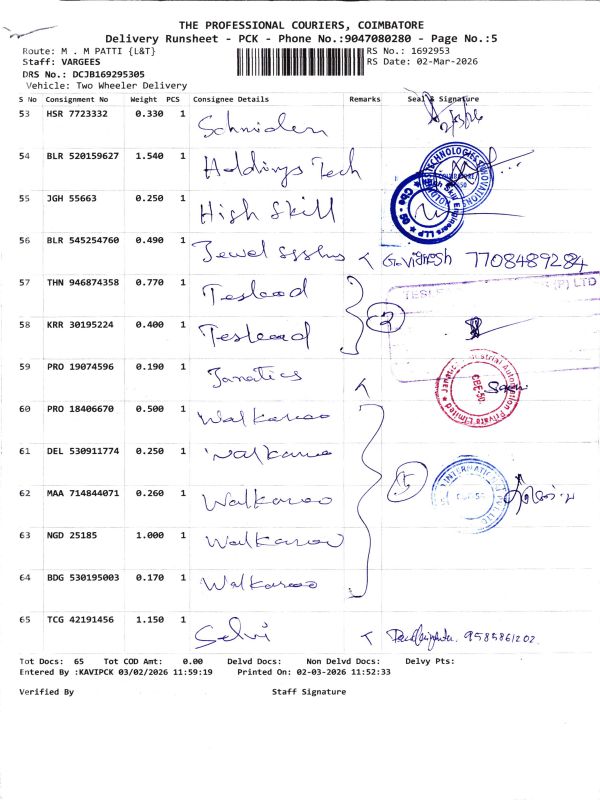 THE PROFESSIONAL COURIERS, COIMBATORE
Delivery Runsheet - PCK - Phone No.:9047080280 - Page No.:5
Route: M . M PATTI {L&T} RS No.: 1692953
Staff: VARGEES RS Date: 02-Mar-2026
DRS No.: DCJB169295305
Vehicle: Two Wheeler Delivery
S No Consignment No Weight PCS Consignee Details Remarks Seal & Signature
53 HSR 7723332 0.330 1
54 BLR 520159627 1.540 1 Holdings Tech
55 JGH 55663 0.250 1 High Skill
56 BLR 545254760 0.490 1 Jewel 7708489284
57 THN 946874358 0.770 1 Teslead
58 KRR 30195224 0.400 1 Teslead 2
59 PRO 19074596 0.190 1 Janatics
60 PRO 18406670 0.500 1 Walkaroo
61 DEL 530911774 0.250 1 Walkaroo
62 MAA 714844071 0.260 1 Walkaroo 5
63 NGD 25185 1.000 1 Walkaroo
64 BDG 530195003 0.170 1 Walkaroo
65 TCG 42191456 1.150 1 Selvi 9585861202
Tot Docs: 65 Tot COD Amt: 0.00 Delvd Docs: Non Delvd Docs: Delvy Pts:
Entered By :KAVIPCK 03/02/2026 11:59:19 Printed On: 02-03-2026 11:52:33
Verified By Staff Signature